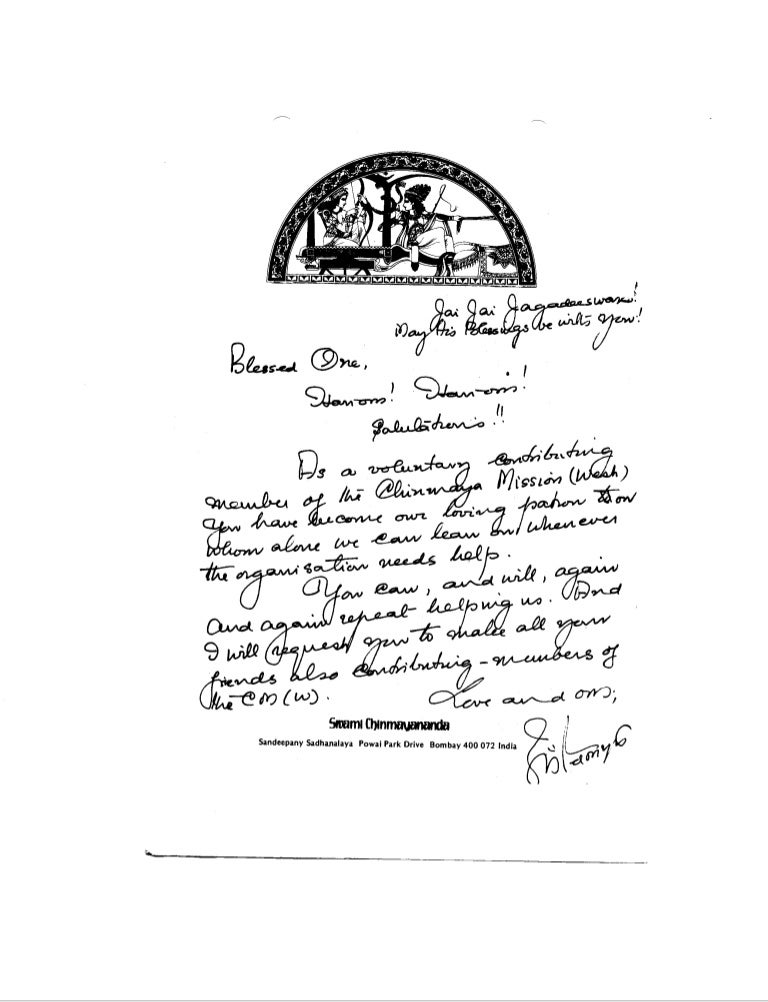 Jai Jai Jagadeeswara!
May His Blessings be with you!
Blessed One,
Hari-om! Hari-om!
Salutations!!
As a voluntary contributing
member of the Chinmaya Mission (West)
you have become our loving patron on
whom alone we can lean on, whenever
the organisation needs help.
You can, and will, again
and again repeat helping us. And
I will request you to make all your
friends also contributing-members of
the CM (W).
Love and om;
Swami Chinmayananda
Sandeepany Sadhanalaya Powai Park Drive Bombay 400 072 India